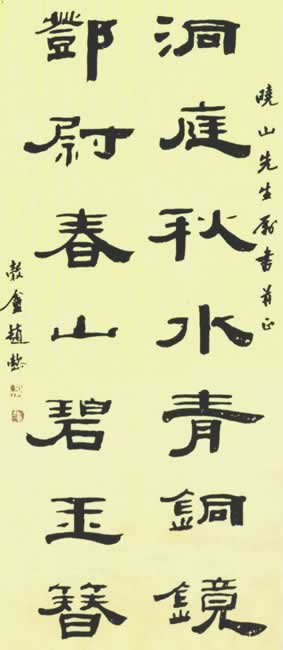 曉山先生書正
洞庭秋水青銅鏡
鄧尉春山碧玉簪
盦趙